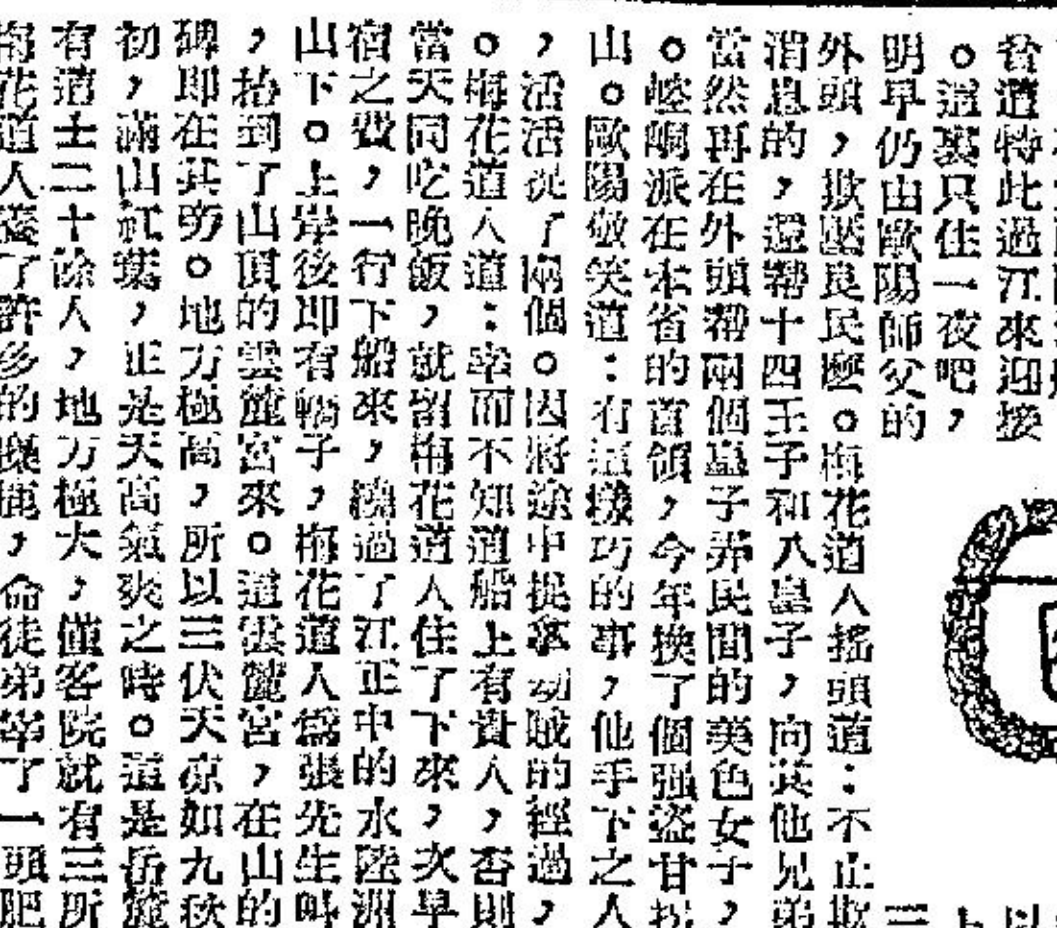 貧道特此過江來迎接
。這裏只住一夜吧，
明早仍由歐陽師父的
外頭，欺壓良民麽。梅花道人搖頭道：不止欺
消息的，還幫十四王子和八皇子，向其他兄弟
當然再在外頭幫兩個皇子弄民間的美色女子，
。崆峒派在本省的首領，今年換了個强盜甘
山。歐陽敬笑道：有這樣巧的事，他手下之人
，活活捉了兩個。因將途中捉拿刼賊的經過，
。梅花道人道：幸而不知道船上有貴人，否則
當天同吃晚飯，就留梅花道人住了下來，次早
宿之費，一行下船來，繞過了江正中的水陸洲
山下。上岸後即有轎子，梅花道人爲張先生叫
，抬到了山頂的雲麓宮來。這雲麓宮，在山的
碑即在其旁。地方極高，所以三伏天凉如九秋
初，滿山紅葉，正是天高氣爽之時。這是岳麓
有道士二十餘人，地方極大，僅客院就有三所
梅花道人養了許多的麋鹿，命徒弟宰了一頭肥